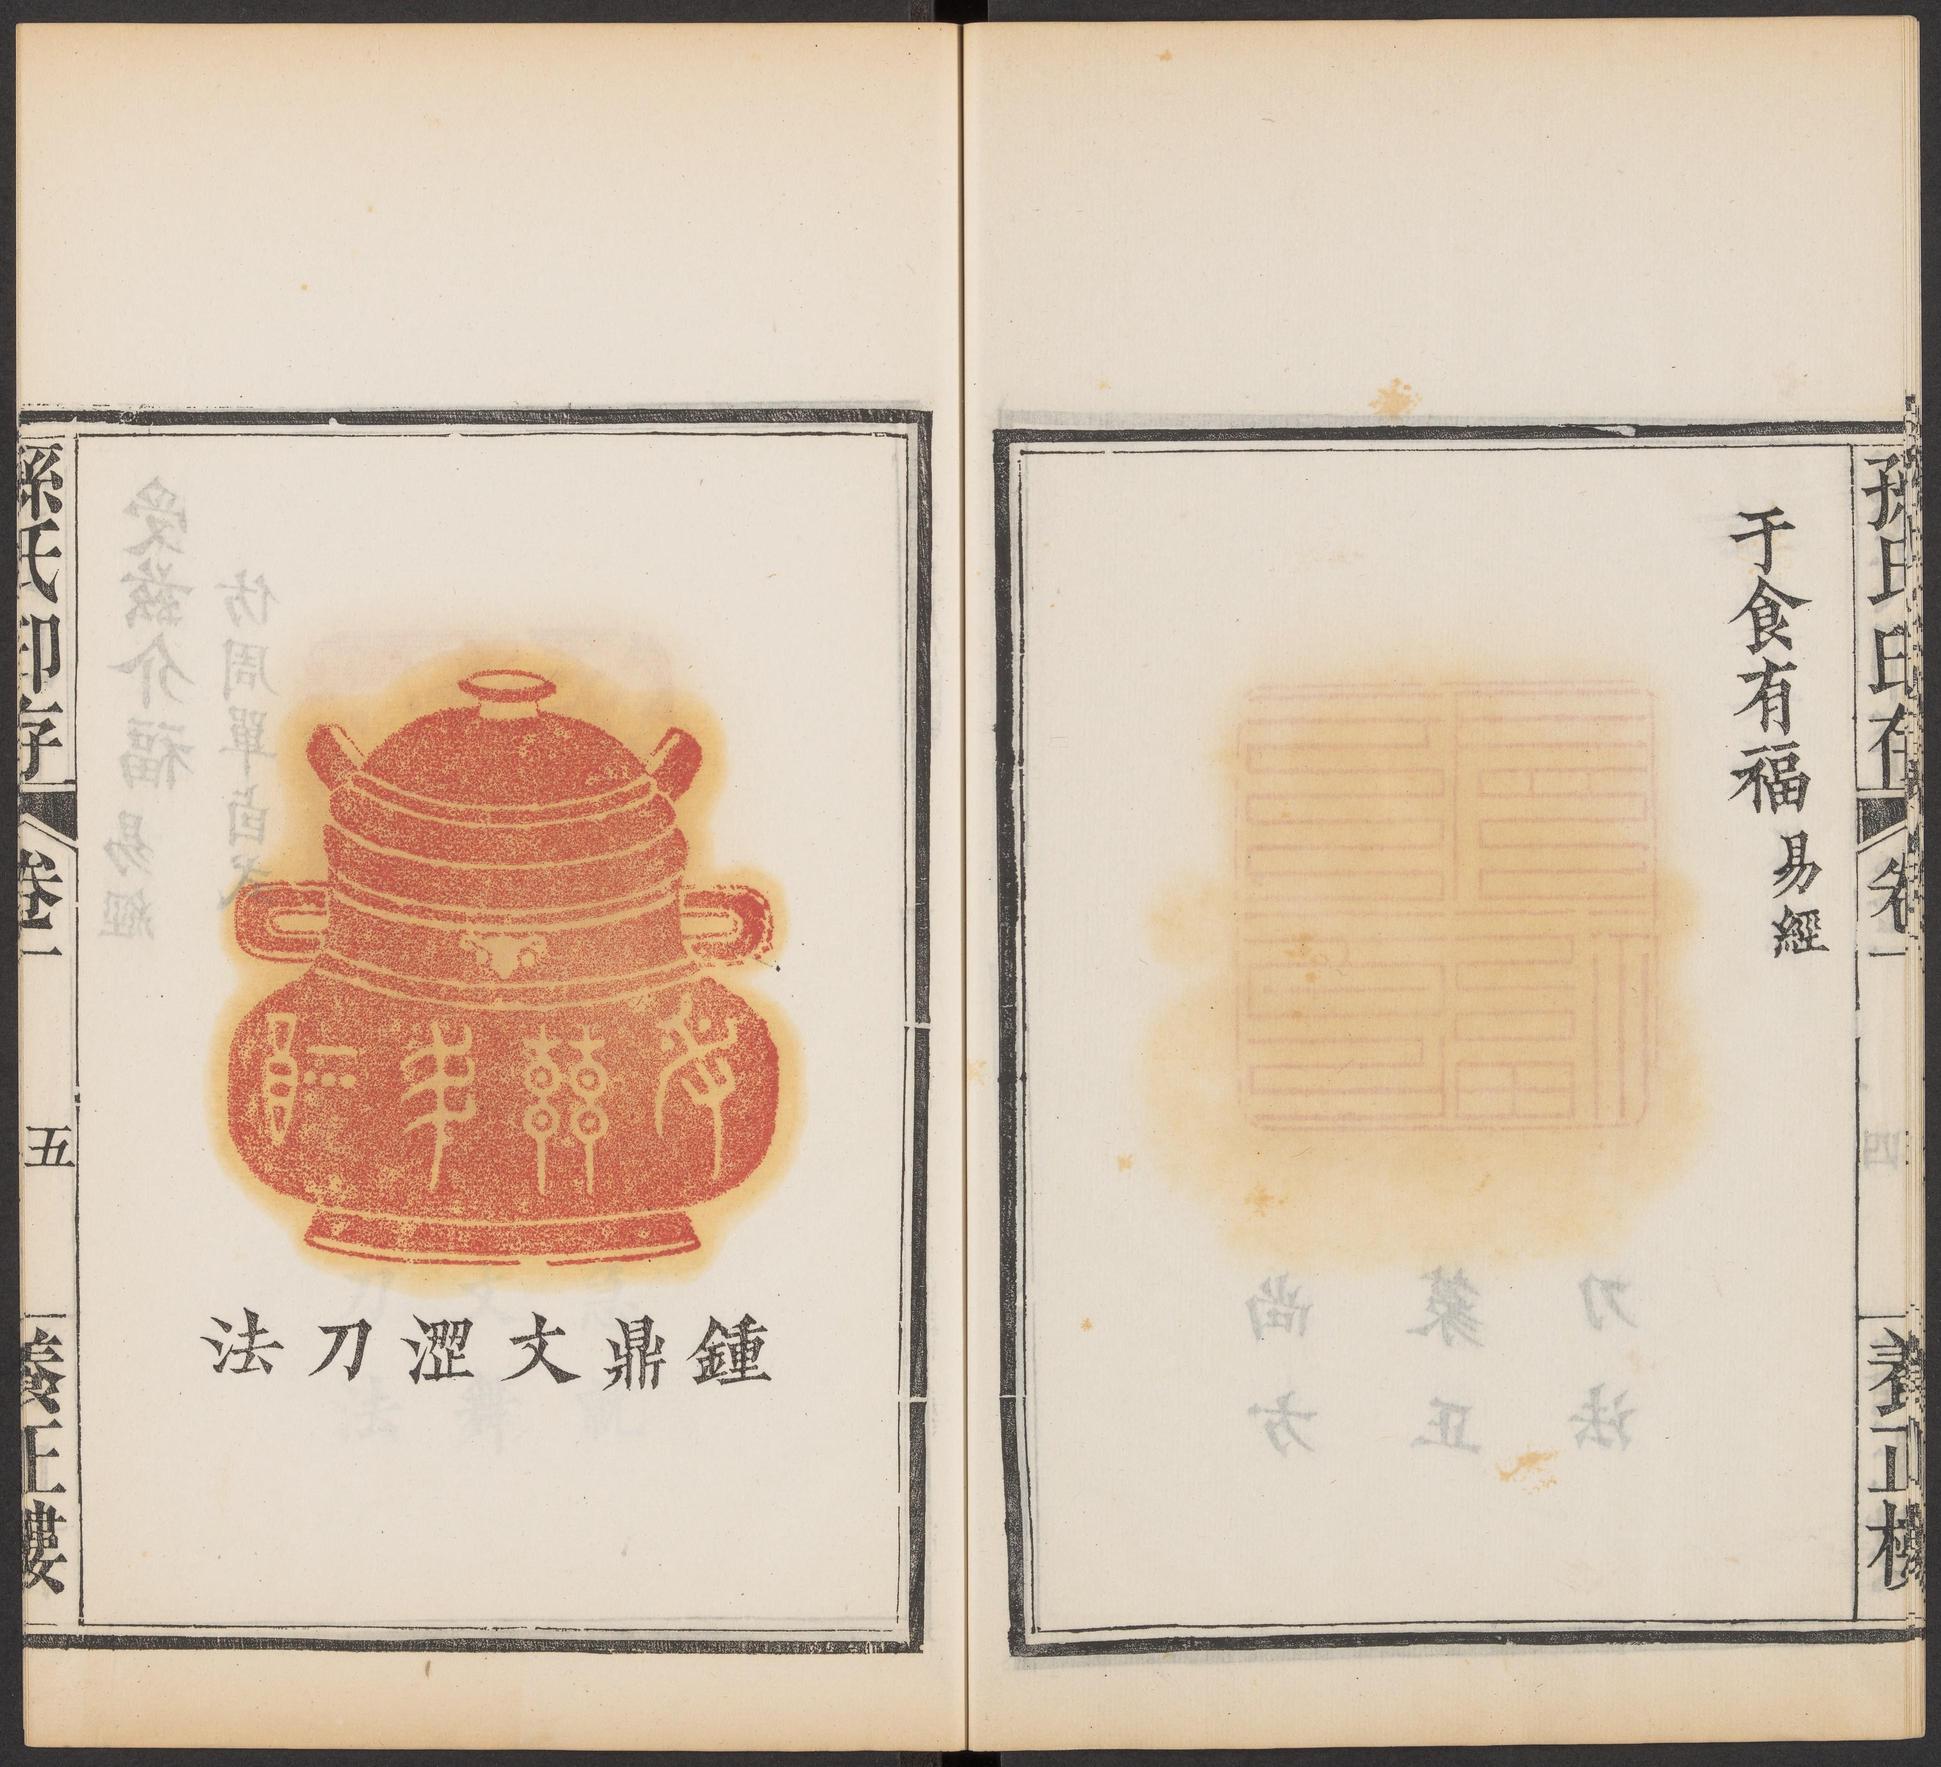 孫氏印存 卷一 養正樓
于食有福 易經
鍾鼎文澀刀法
孫氏印存 卷一 五 養正樓